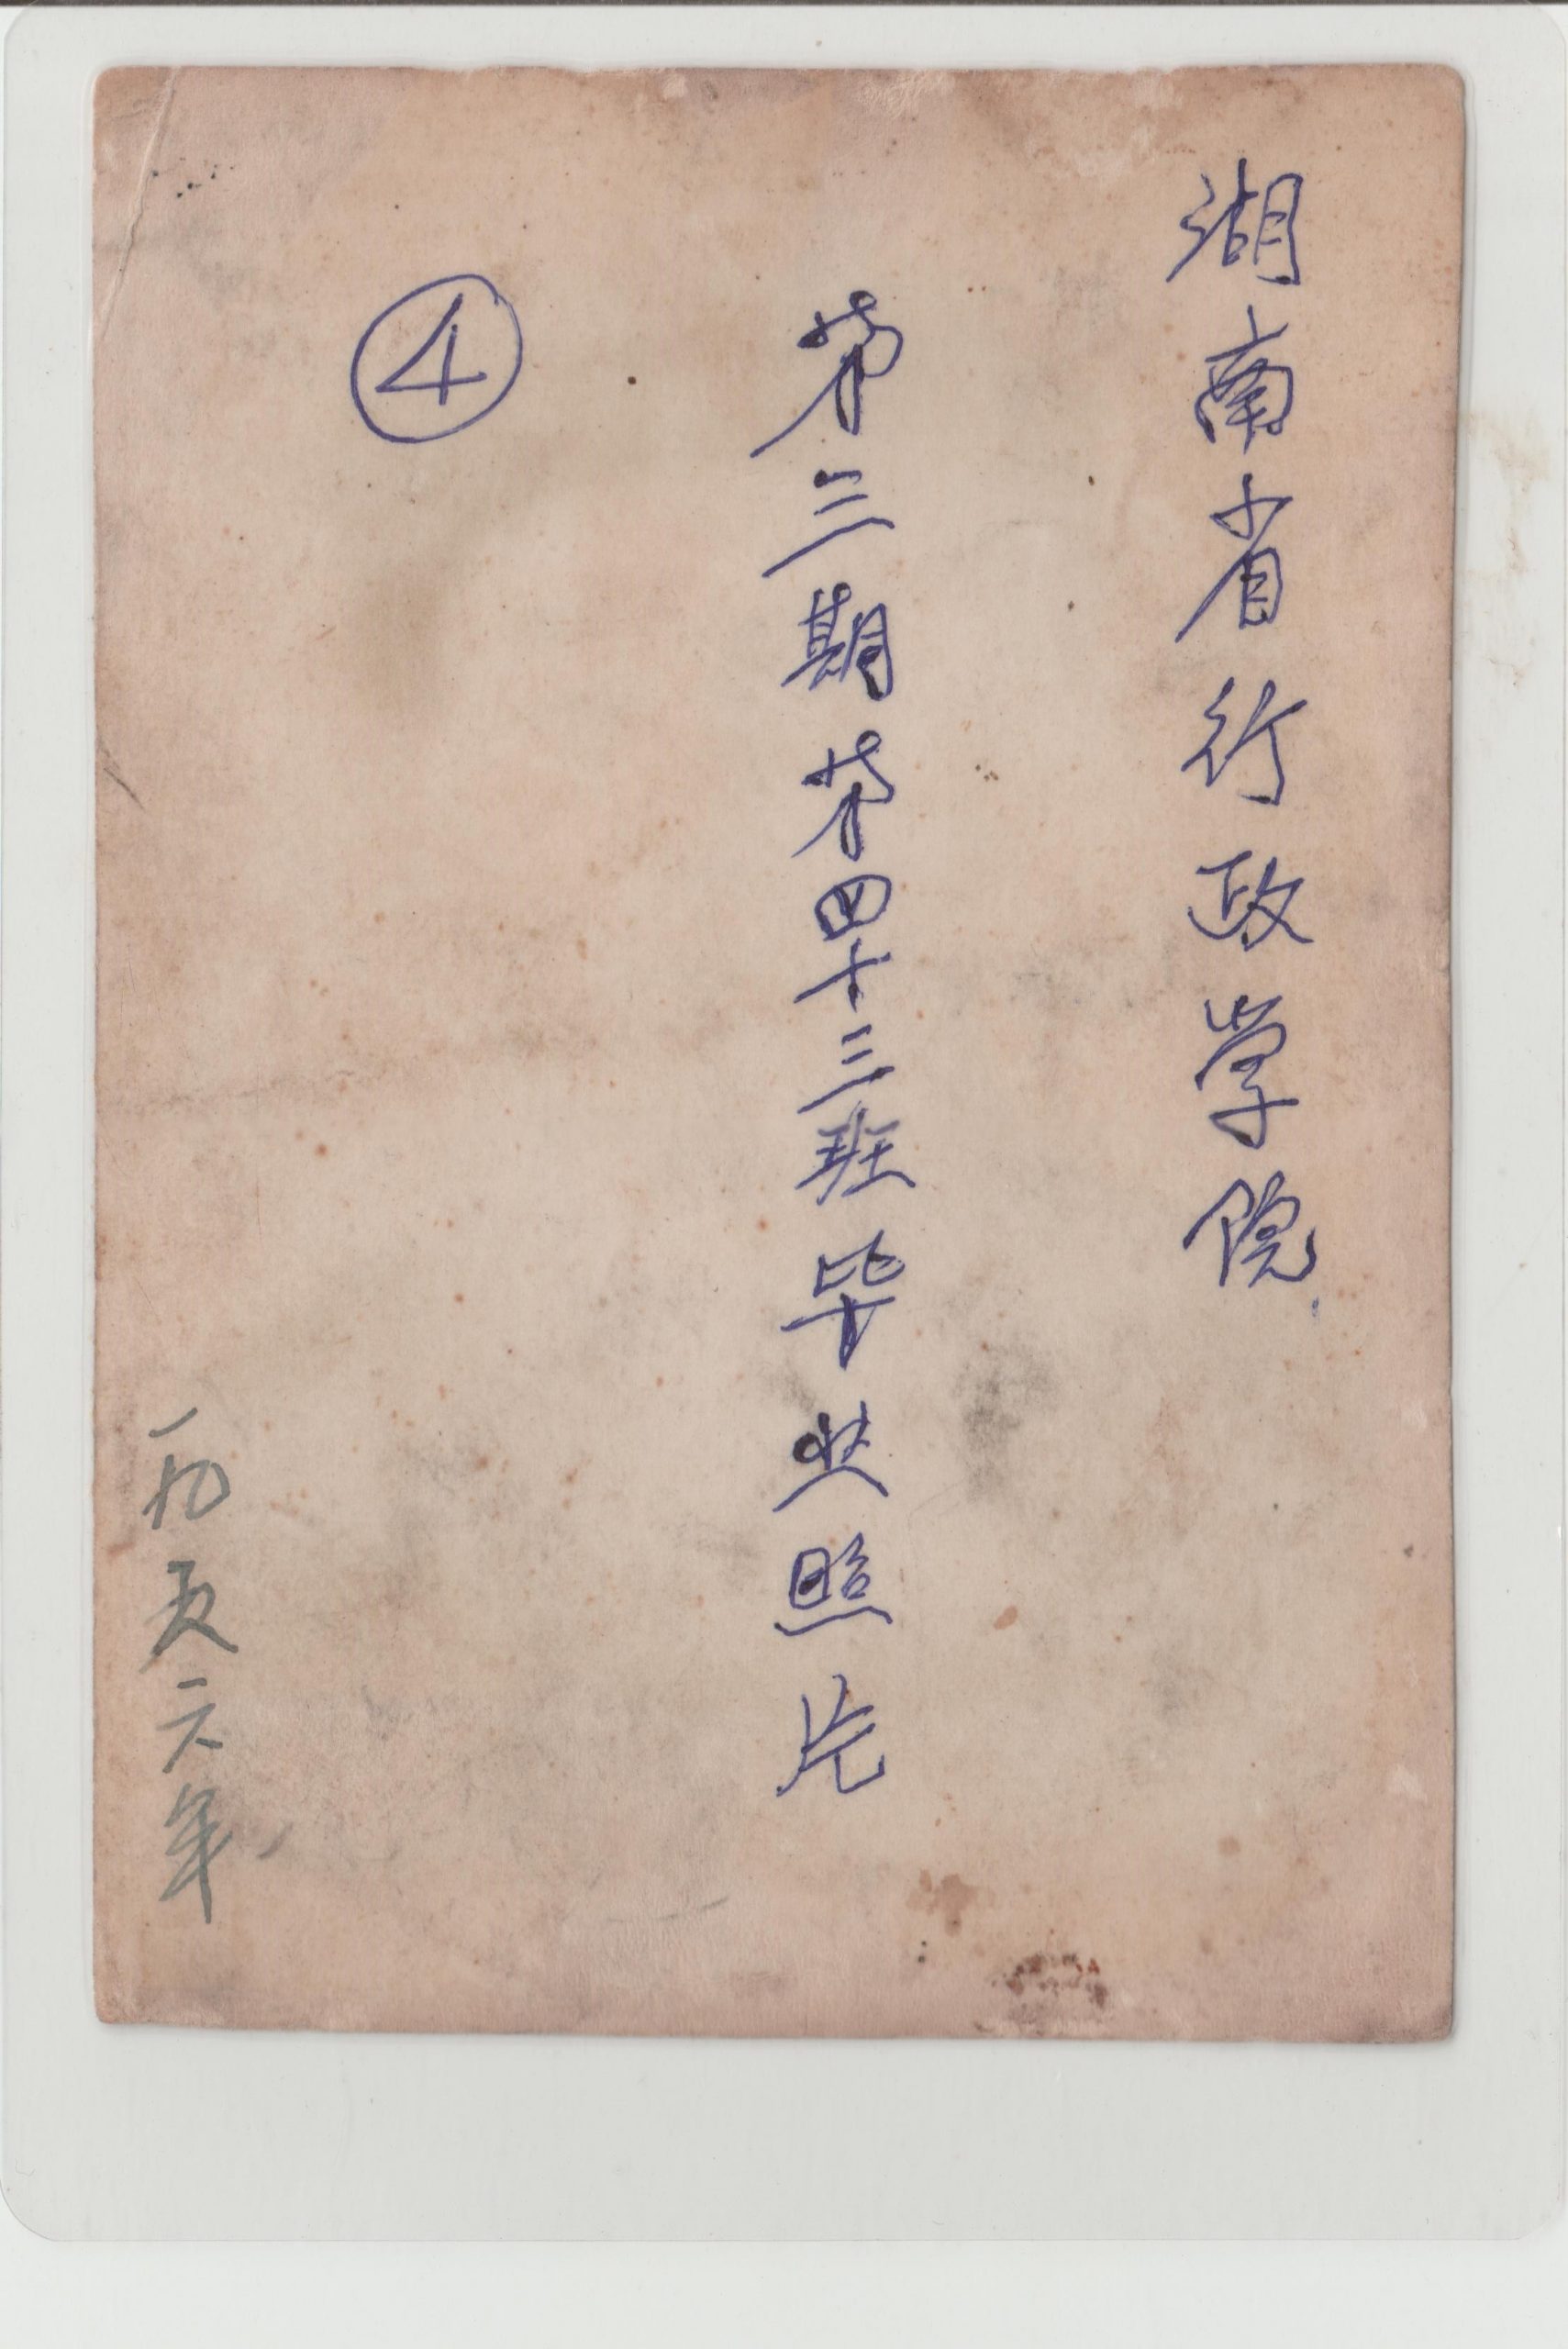 湖南省行政学院
第三期第四十三班毕业照片
④
一九五六年